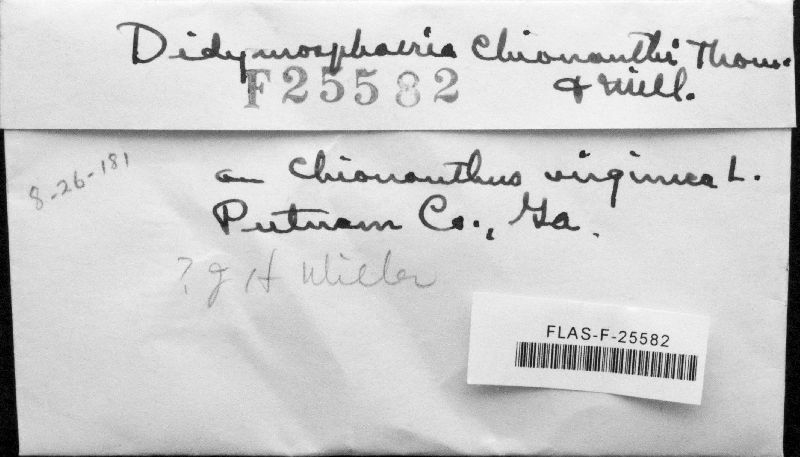 Didymosphaeria Chionanthi Thom.
& Mill.
F25582
8-26-181
on Chionanthus virginica L.
Putnam Co., Ga.
? J H Miller
FLAS-F-25582